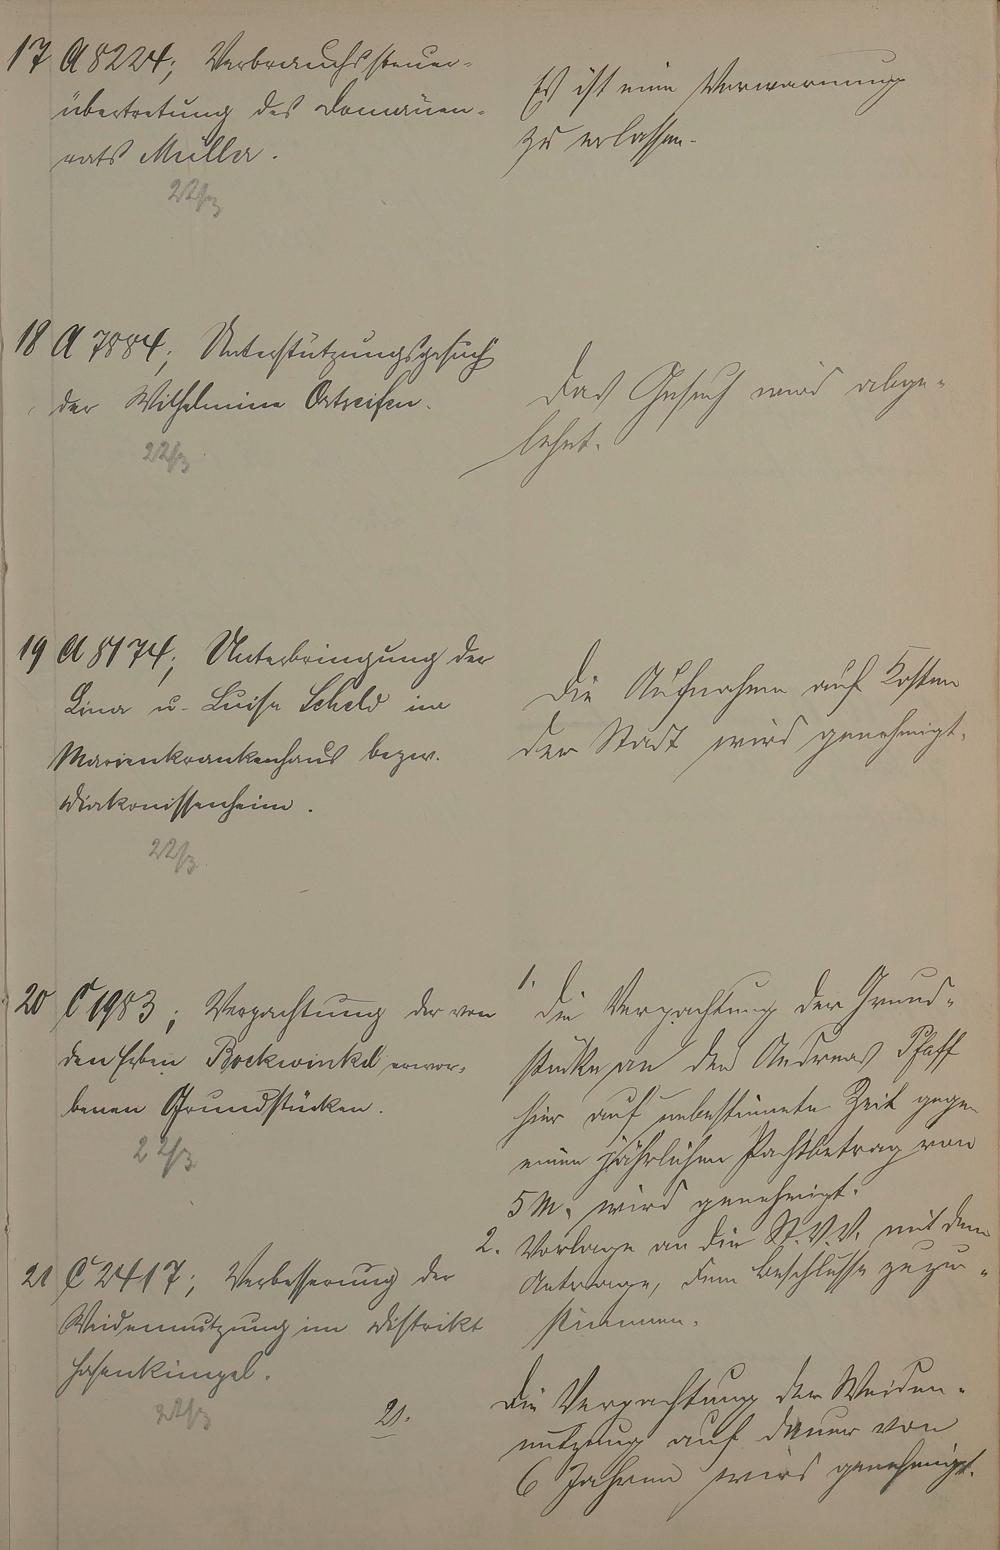 17 A 8224; Verbrauchssteuer-
übertretung des Domänen-
rats Müller.
22/3
Es ist eine Verwarnung
zu erlassen.
18 A 7884; Unterstützungsgesuch
der Wilhelmine Ostreifen.
22/3
Das Gesuch wird abge-
lehnt.
19 A 8174; Unterbringung der
Lina u. Luise Scheld im
Marienkrankenhaus bezw.
Diakonissenheim.
22/3
Die Aufnahme auf Kosten
der Stadt wird genehmigt.
20 C 1983; Verpachtung der von
den Erben Bockwinkel erwor-
benen Grundstücken.
22/3
1. Die Verpachtung der Grund-
stücke an den Andreas Pfaff
hier auf unbestimmte Zeit gege-
einen jährlichen Pachtbetrag von
5 M. wird genehmigt.
2. Vorlage an die St.V.V. mit dem
Antrage, dem Beschlusse zuzu-
stimmen.
21 C 2417; Verbesserung der
Weidennutzung im Distrikt
Hasenkimpel.
22/3
21.
Die Verpachtung der Weiden-
nutzung auf Dauer von
6 Jahren wird genehmigt.